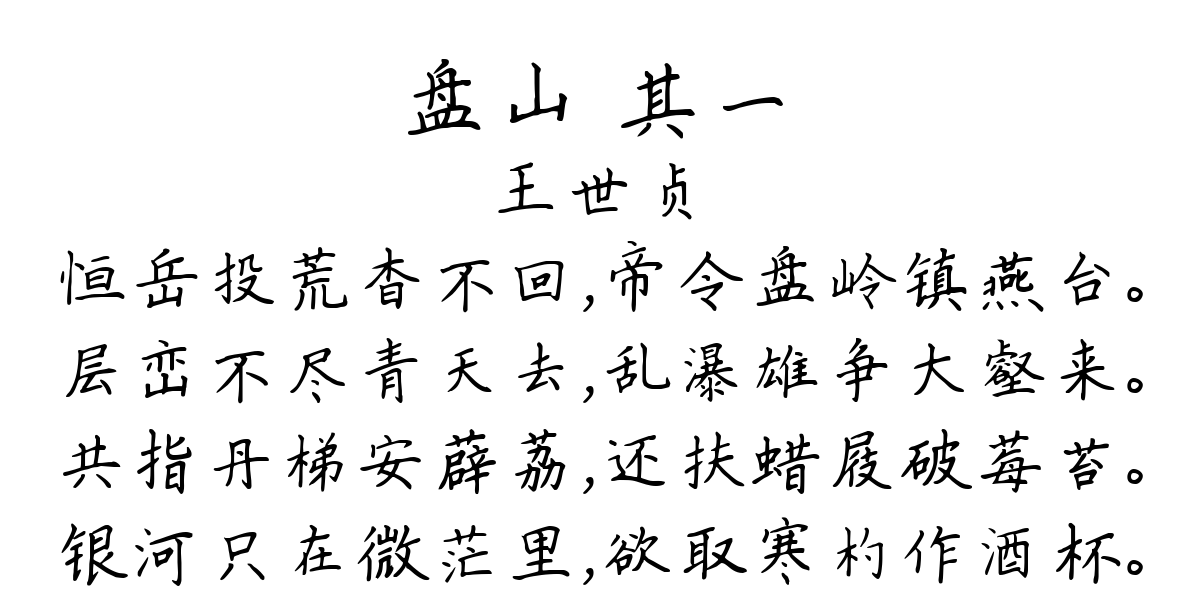 盘山 其一
王世贞
恒岳投荒杳不回,帝令盘岭镇燕台。
层峦不尽青天去,乱瀑雄争大壑来。
共指丹梯安薜荔,还扶蜡屐破莓苔。
银河只在微茫里,欲取寒杓作酒杯。